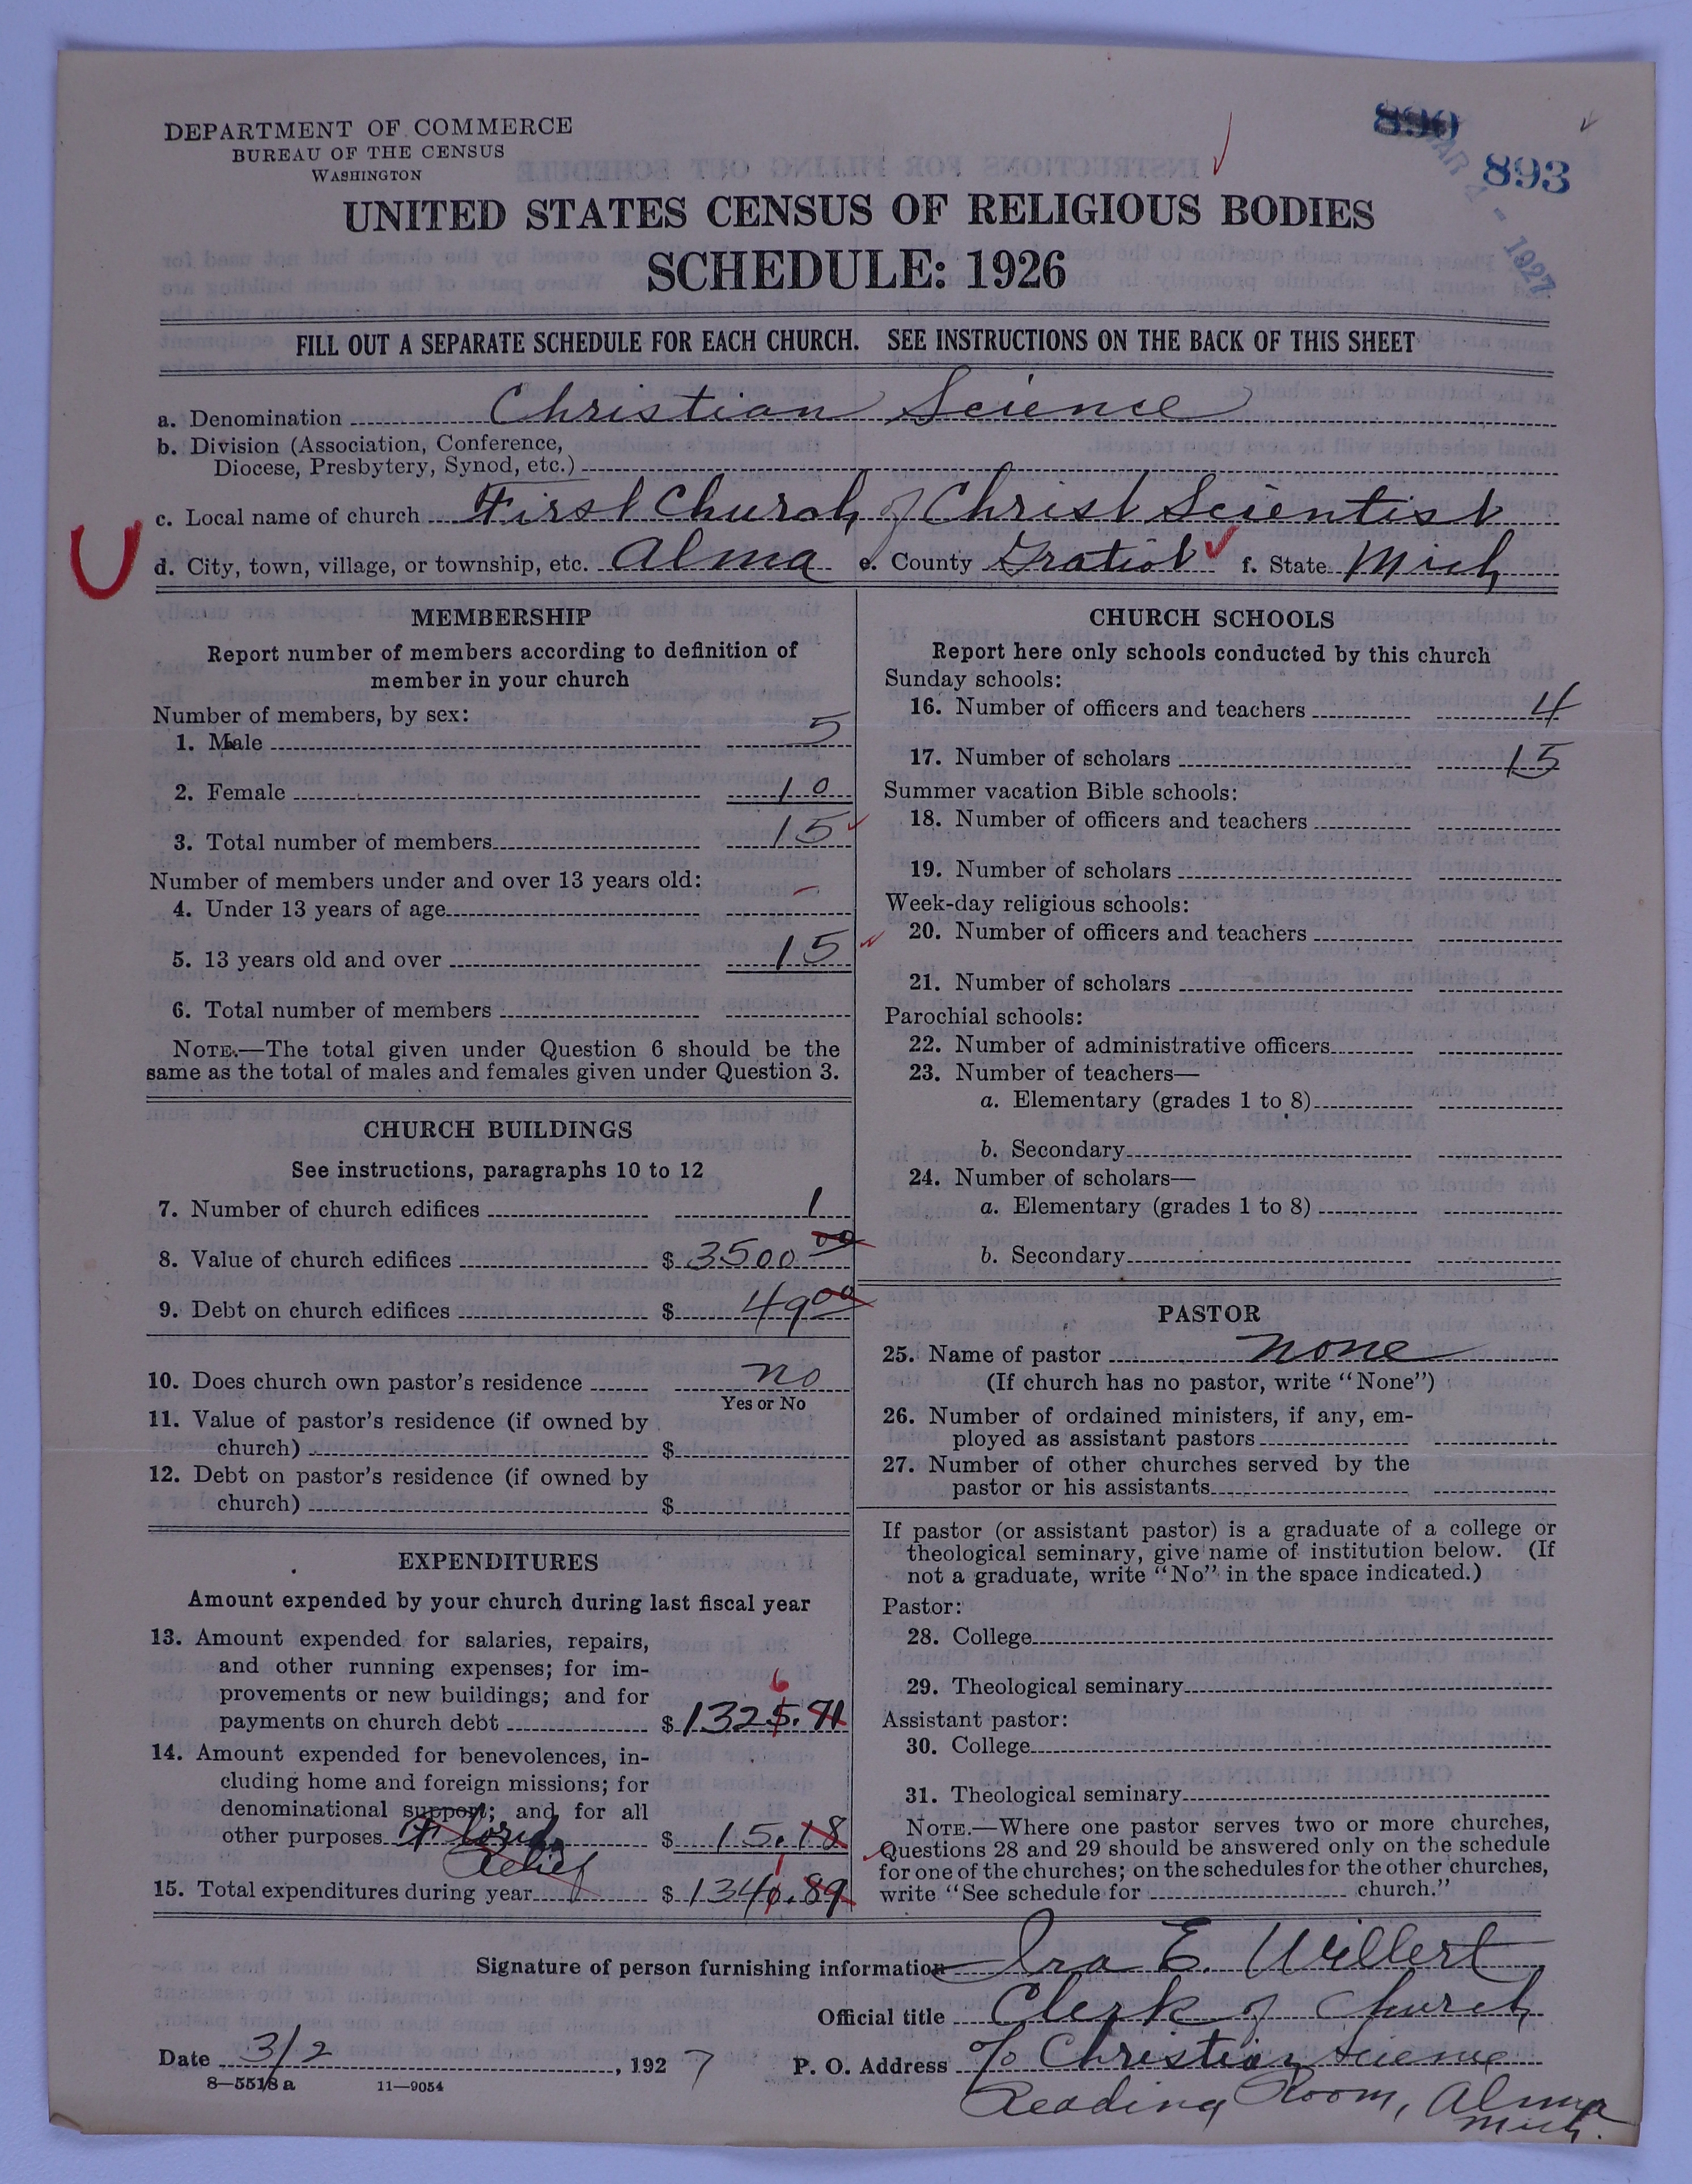 DEPARTMENT OF COMMERCE
BUREAU OF THE CENSUS
WASHINGTON
890
893
MAR 4 - 1927
UNITED STATES CENSUS OF RELIGIOUS BODIES
SCHEDULE: 1926
FILL OUT A SEPARATE SCHEDULE FOR EACH CHURCH. SEE INSTRUCTIONS ON THE BACK OF THIS SHEET
a. Denomination Christian Science
b. Division (Association, Conference,
Diocese, Presbytery, Synod, etc.)
c. Local name of church First Church of Christ Scientist
d. City, town, village, or township, etc. Alma e. County Gratiot f. State Mich
MEMBERSHIP
Report number of members according to definition of
member in your church
Number of members, by sex:
1. Male 5
2. Female 10
3. Total number of members 15
Number of members under and over 13 years old:
4. Under 13 years of age –
5. 13 years old and over 15
6. Total number of members
NOTE.—The total given under Question 6 should be the
same as the total of males and females given under Question 3.
CHURCH BUILDINGS
See instructions, paragraphs 10 to 12
7. Number of church edifices 1
8. Value of church edifices $ 3500 00
9. Debt on church edifices $ 49 00
10. Does church own pastor's residence no
Yes or No
11. Value of pastor's residence (if owned by
church) $
12. Debt on pastor's residence (if owned by
church) $
EXPENDITURES
Amount expended by your church during last fiscal year
13. Amount expended for salaries, repairs,
and other running expenses; for im-
provements or new buildings; and for
6
payments on church debt $ 1325.71
14. Amount expended for benevolences, in-
cluding home and foreign missions; for
denominational support; and for all
other purposes Florida $ 15.18
Relief
1
15. Total expenditures during year $ 1340.89
CHURCH SCHOOLS
Report here only schools conducted by this church
Sunday schools:
16. Number of officers and teachers 4
17. Number of scholars 15
Summer vacation Bible schools:
18. Number of officers and teachers
19. Number of scholars
Week-day religious schools:
20. Number of officers and teachers
21. Number of scholars
Parochial schools:
22. Number of administrative officers
23. Number of teachers—
a. Elementary (grades 1 to 8)
b. Secondary
24. Number of scholars—
a. Elementary (grades 1 to 8)
b. Secondary
PASTOR
25. Name of pastor none
(If church has no pastor, write "None")
26. Number of ordained ministers, if any, em-
ployed as assistant pastors
27. Number of other churches served by the
pastor or his assistants
If pastor (or assistant pastor) is a graduate of a college or
theological seminary, give name of institution below. (If
not a graduate, write "No" in the space indicated.)
Pastor:
28. College
29. Theological seminary
Assistant pastor:
30. College
31. Theological seminary
NOTE.—Where one pastor serves two or more churches,
Questions 28 and 29 should be answered only on the schedule
for one of the churches; on the schedules for the other churches,
write "See schedule for church."
Signature of person furnishing information Ira E. Willert
Official title Clerk of Church
Date 3/2, 1927 P. O. Address c/o Christian Science
Reading Room, Alma
Mich.
8—5518 a 11—9054